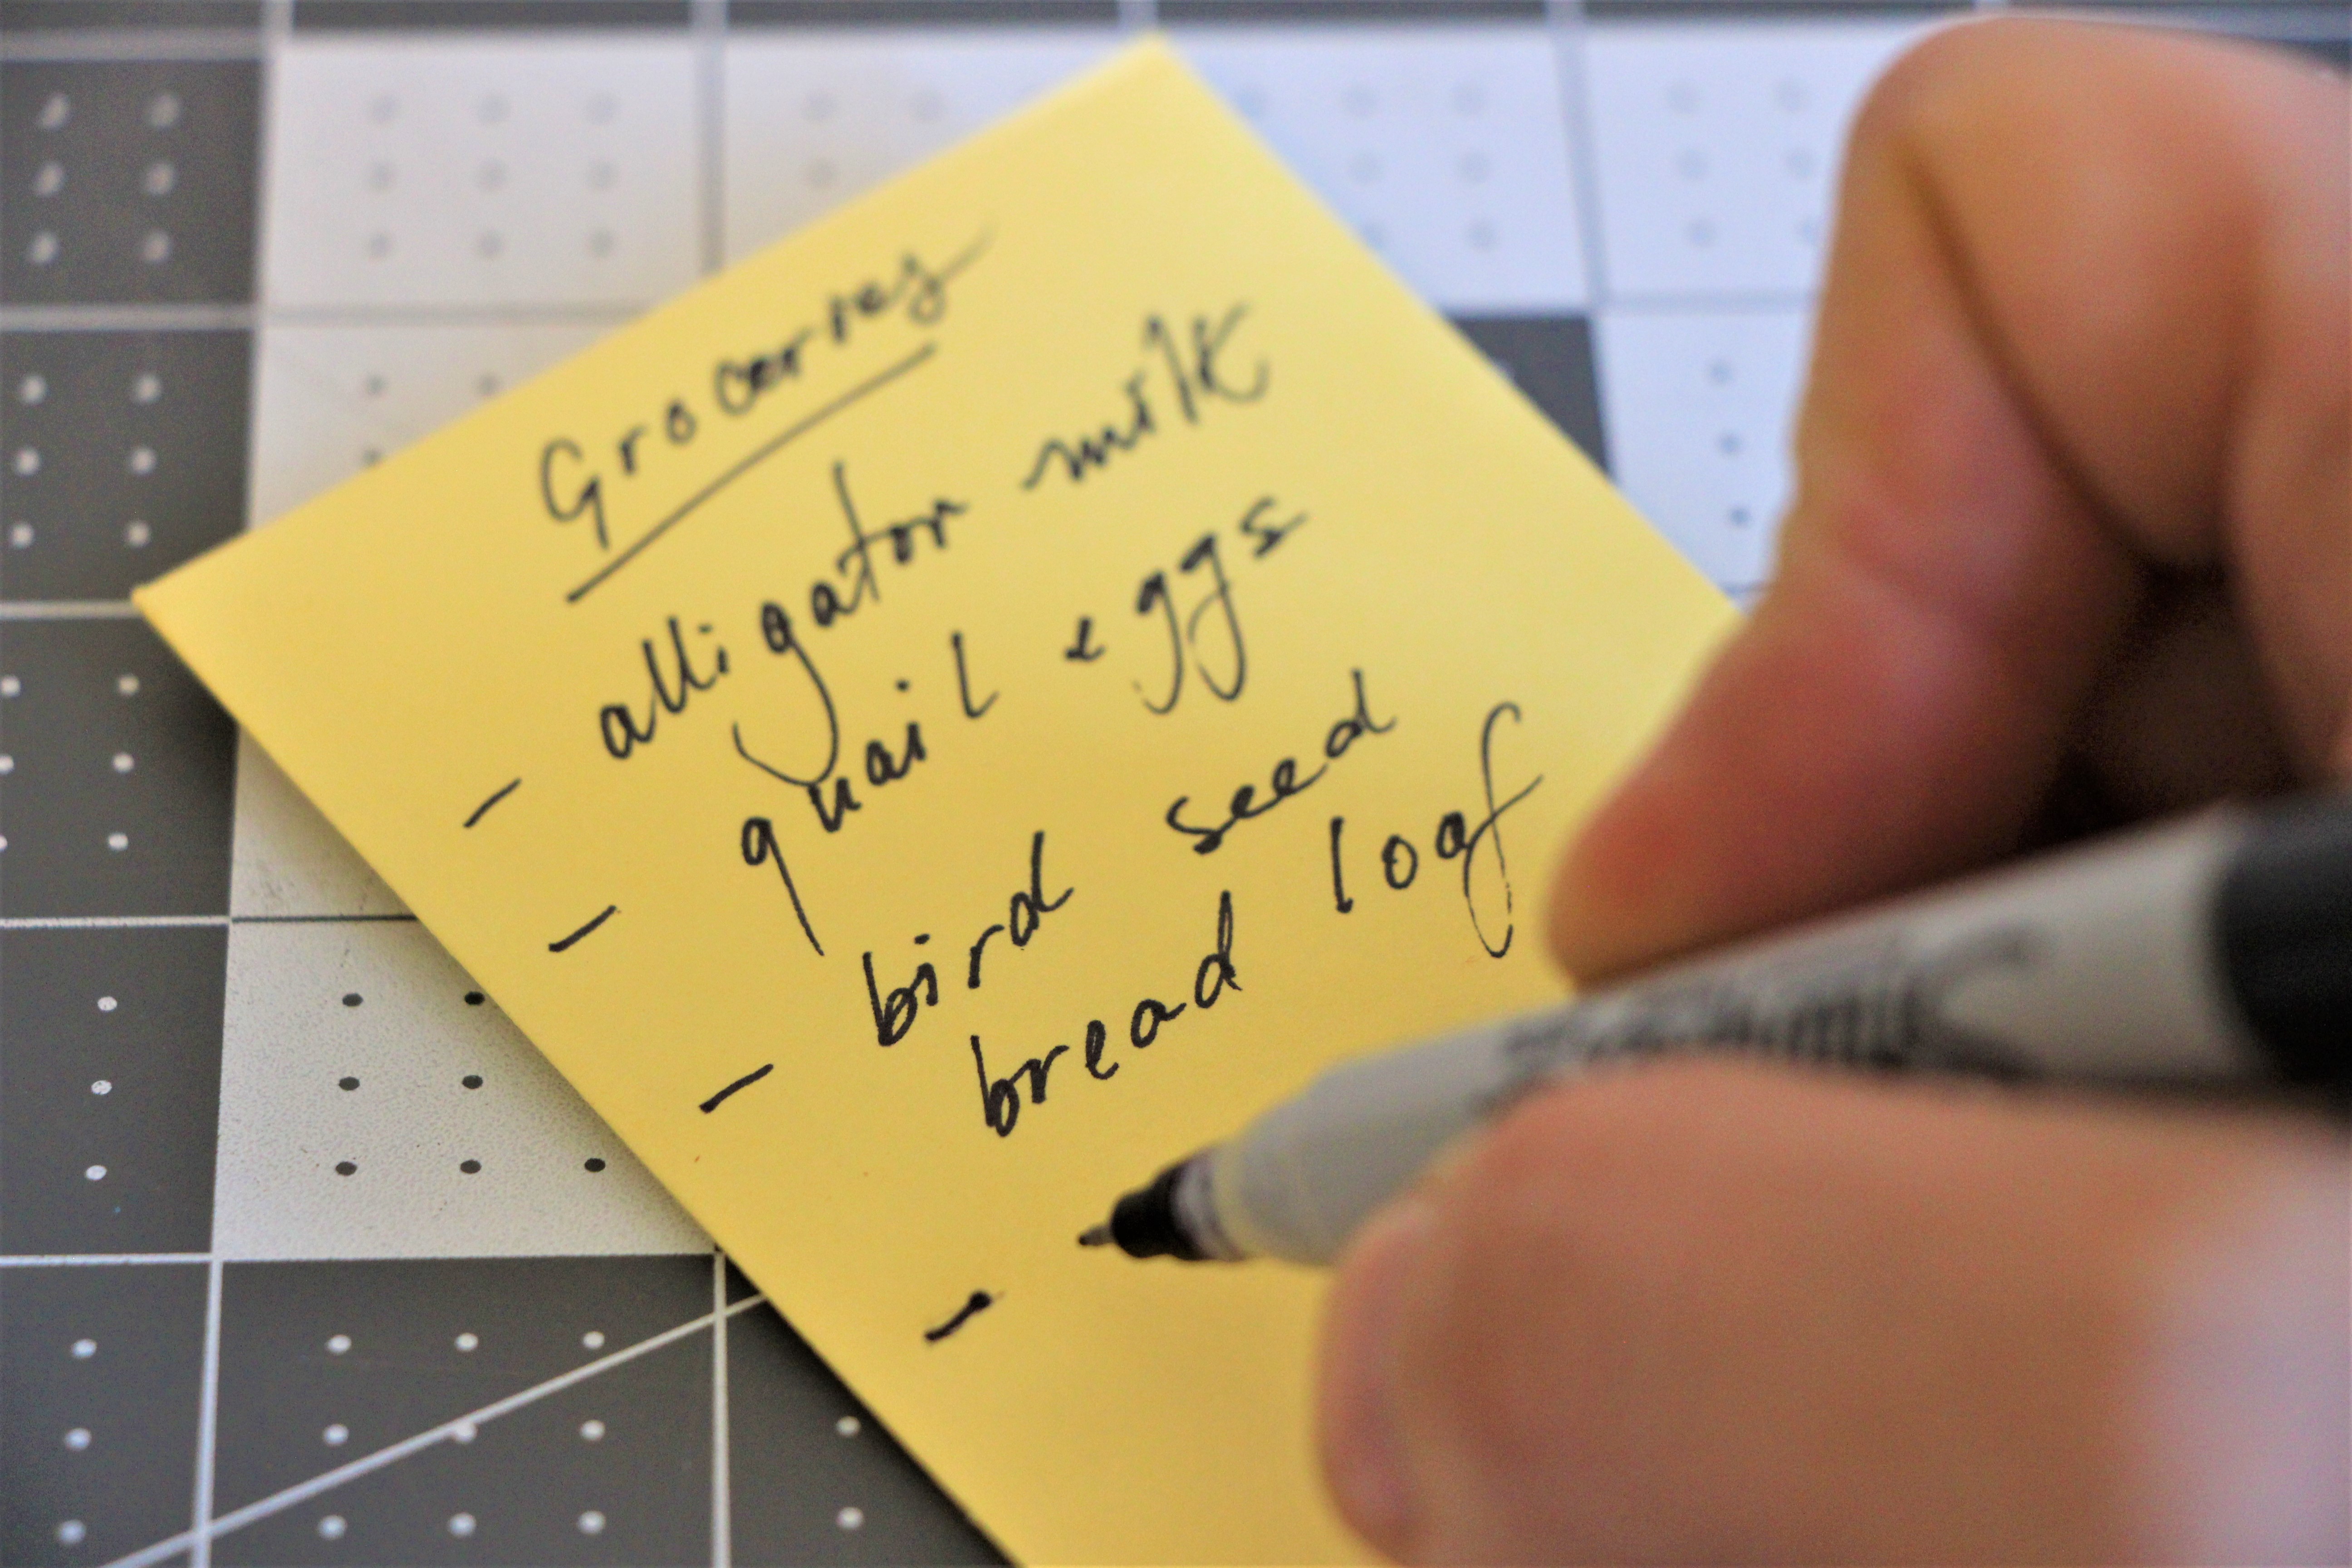 Groceries
- alligator milk
- quail eggs
- bird seed
bread loaf
-